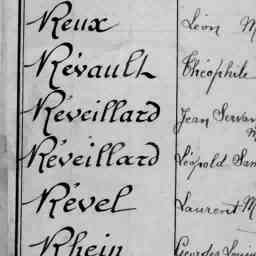 Reux Léon M
Révault Théophile
Réveillard Jean Servan
M
Réveillard Léopold Sam
Rével Laurent M
Rhein Georges Louis